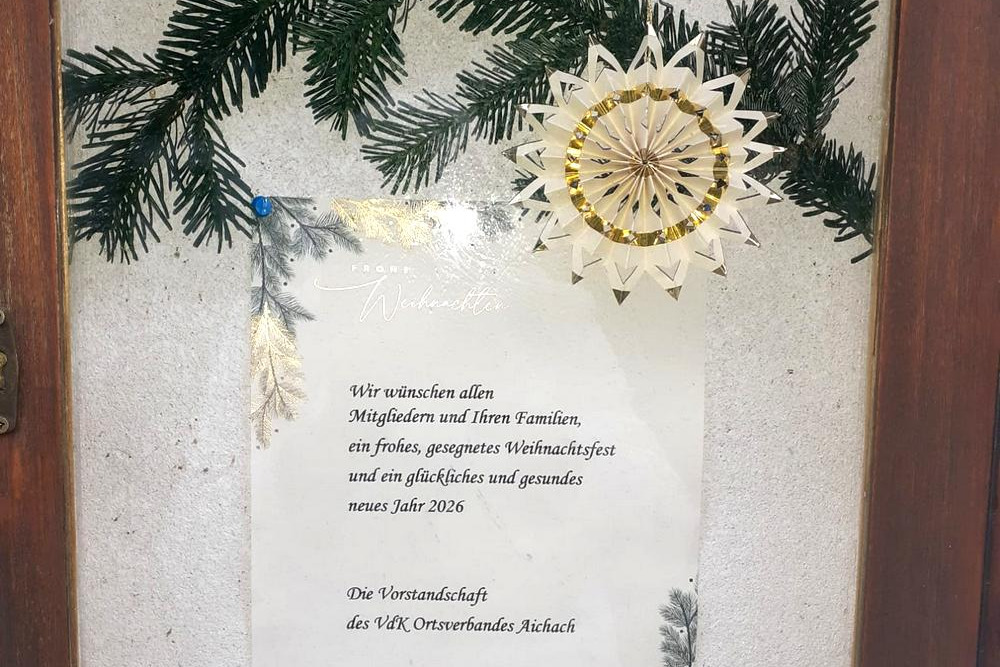 FROHE
Weihnachten
Wir wünschen allen
Mitgliedern und Ihren Familien,
ein frohes, gesegnetes Weihnachtsfest
und ein glückliches und gesundes
neues Jahr 2026
Die Vorstandschaft
des VdK Ortsverbandes Aichach